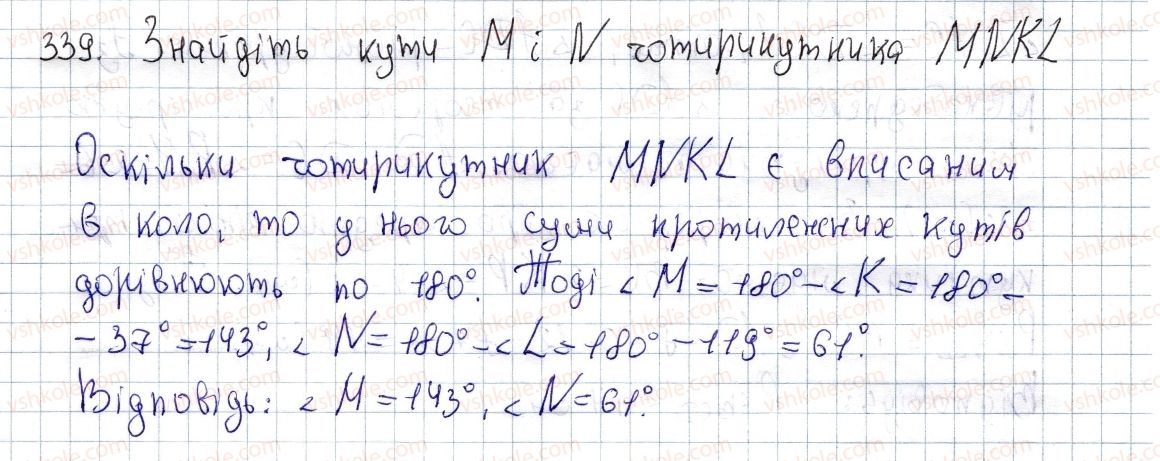 339. Знайдіть кути M і N чотирикутника MNKL
Оскільки чотирикутник MNKL є вписаним
в коло, то у нього суми протилежних кутів
дорівнюють по 180°. Тоді < M = 180° - < K = 180° -
- 37° = 143°, < N = 180° - < L = 180° - 119° = 61°.
Відповідь: < M = 143°, < N = 61°.